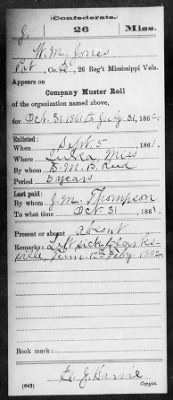 Confederate.
J. 26 Miss.
W. M. Jones
Pvt, Co. 26 Reg't Mississippi Vols.
Appears on
Company Muster Roll
of the organization named above,
for Oct. 31, 1861 to July 31, 1862.
Enlisted:
When Sept. 5, 1861.
Where Iuka, Miss
By whom M. B.
Period 3 years
Last paid:
By whom J. M. Thompson
To what time Oct. 31, 186
Present or absent absent
Remarks: Left sick Clarks-
ville Tenn. 12th Feby. 1862.
Book mark:
(642) Copyist.